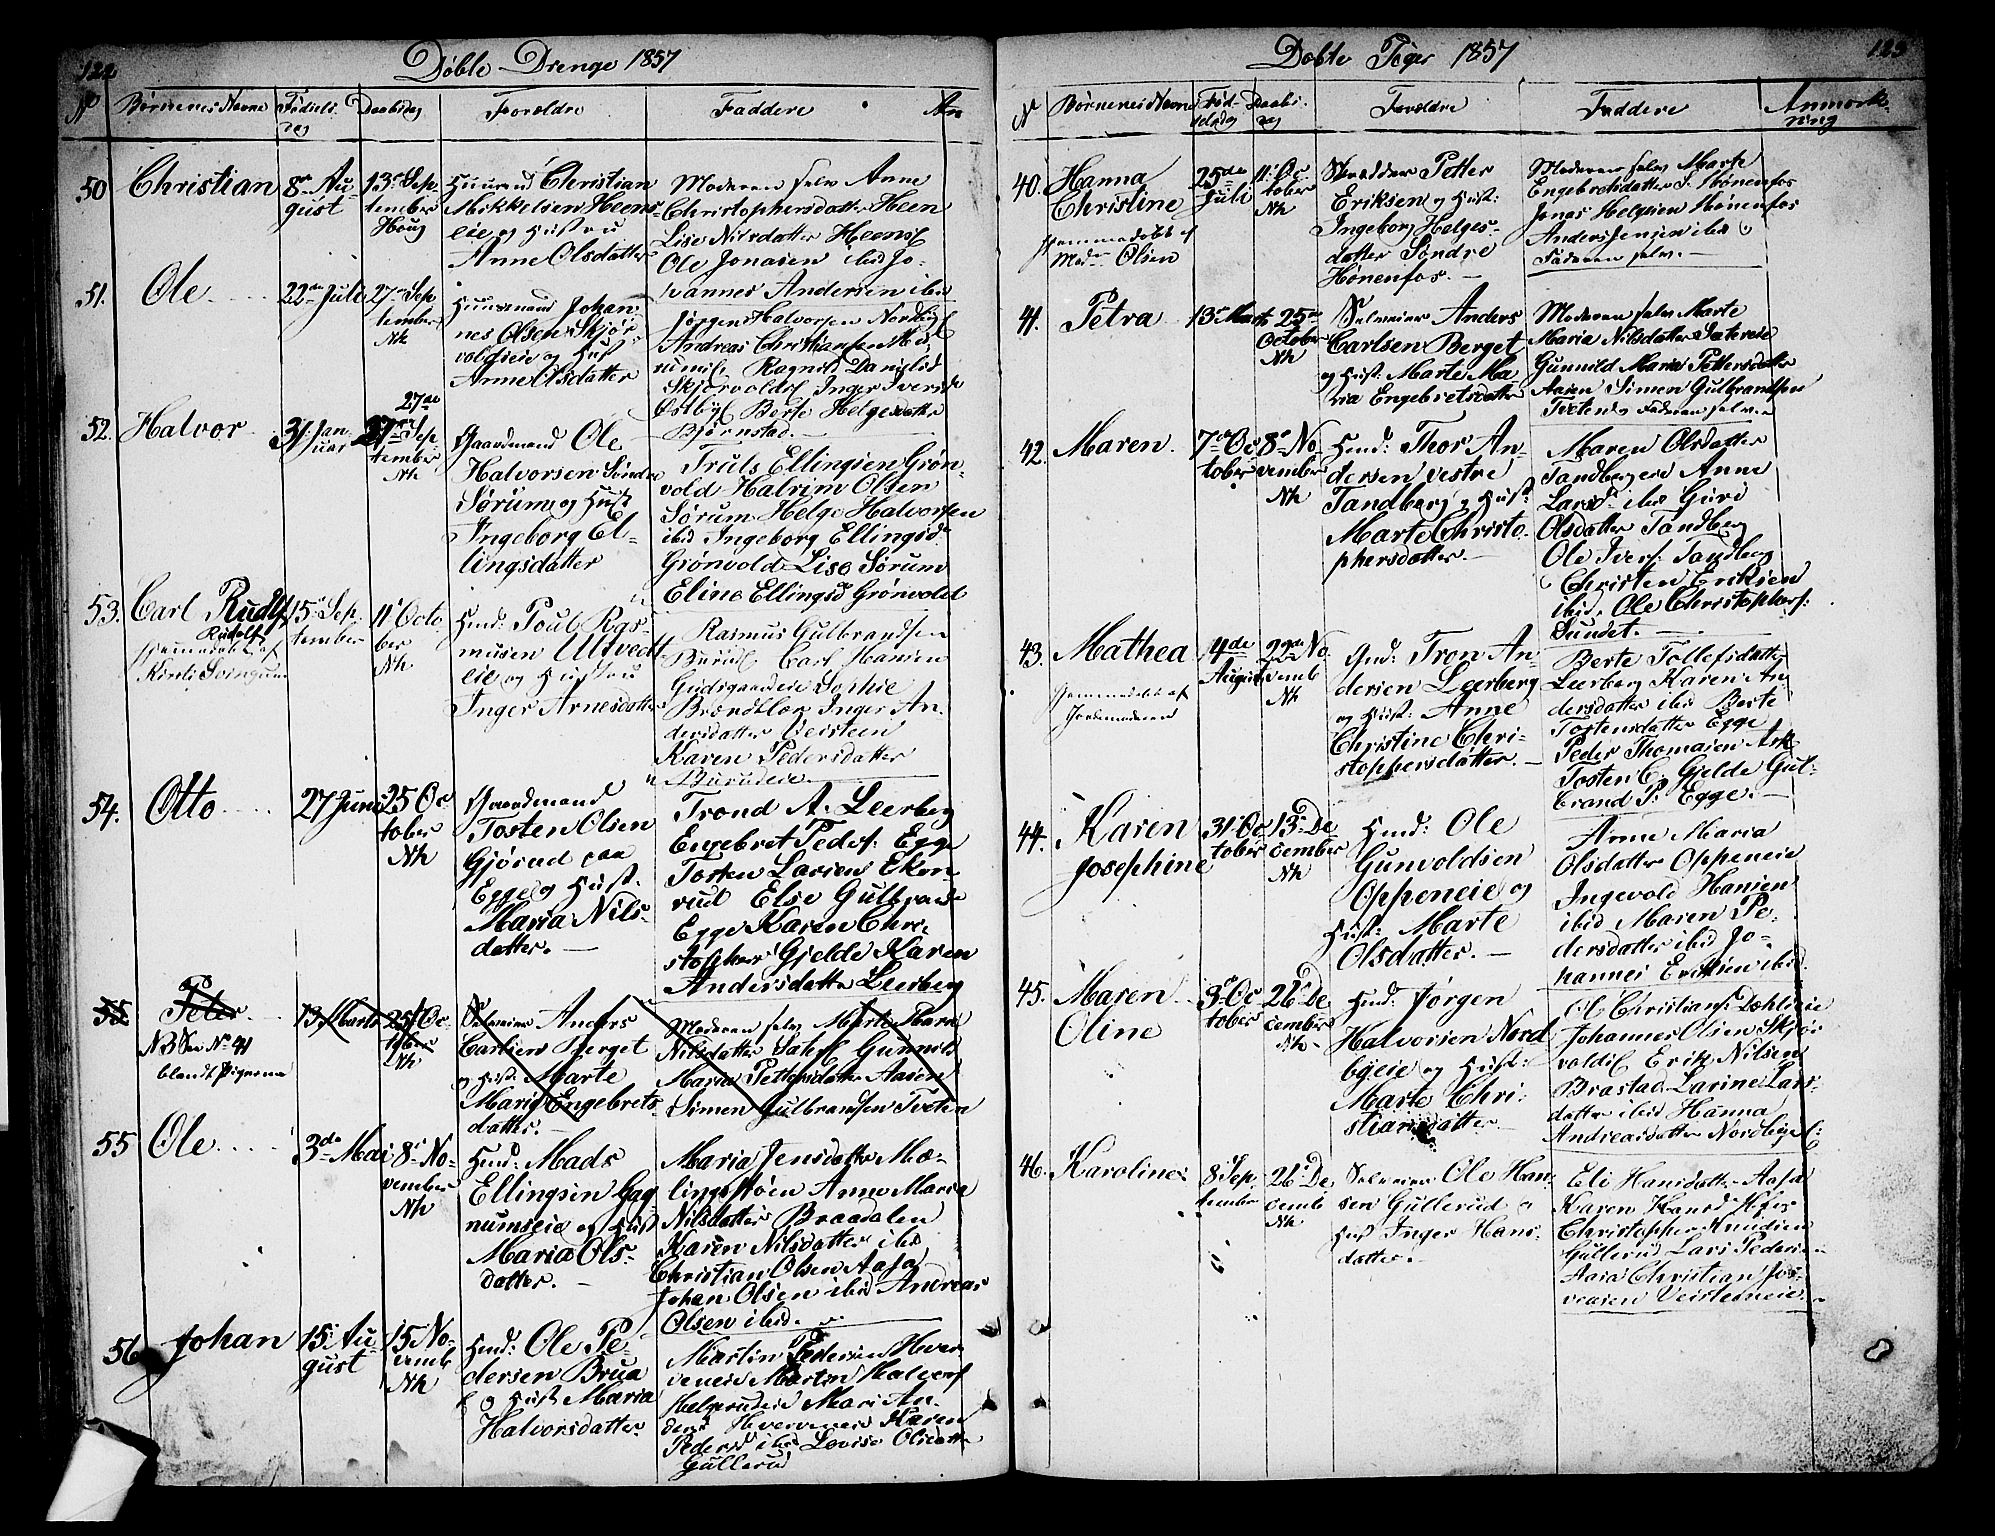 122
Döble Drenge 1857
N
Börnenes Navne
Födels-
dag
Daabsdag
Forældre
Faddere
An
50
Christian
8de Au-
gust
13de Sep-
tember
Houg
Huusmd Christian
Mikkelsen Heens-
eie og Hustru
Anne Olsdatter
Moderen selv Anne
Christophersdatter Heen
Lise Nilsdatter Heense
Ole Jonasen ibid Jo-
hannes Andersen ibid
51.
Ole
22de Juli
27de Sep
tember
Nh
Huusmand Johan-
nes Olsen Skjör-
voldseie og Hust
Anne Olsdatter
Jörgen Halvorsen Nordbye
Andreas Christiansen
Ragnild Danielsd
Skjörvolds Inger Iversd
Östbye Berte Helgesdatter
Björnstad.
52.
Halvor
31 Jan
uar
27de
27de Sep
tember
Nh
Gaardmand Ole
Halvorsen Söndre
Sörum og Hust
Ingeborg El-
lingsdatter
Truls Ellingsen Grön-
vold Halvim Olsen
Sörum Helge Halvorsen
ibid Ingeborg Ellingsd
Grönvold Lise Sörum
Eline Ellingsd Grönvold
53.
Carl Rudlf
Rudolf
hjemmedöbt af
Kirsti Svingrum
15de Sep
tember
11te Octo
ber
Nh
Hmd: Poul Ras-
musen Ultvedt
eie og Hustru
Inger Arnesdatter
Rasmus Gulbrandsen
Burud Carl Hansen
Gudsgaardeie Sophie
Inger An-
dersdatter Veisteen
Karen Pedersdatter
Burudeie
54.
Otto
27 Juni
25 Oc
tober
Nh
Gaardmand
Tosten Olsen
Gjörud paa
Egge og Hust.
Maria Nils-
datter.
Trond A. Leerberg
Engebret Peders: Egge
Tosten Larsen Eken
rud Else Gulbrands
Egge Karen Chri
stophers Gjelde Karen
Andersdatter Leerberg
55
Peter
NB See No 41
blandt Pigerne
13 Marts
25de Oc
tober
Nh
Selveier Anders
Carlsen Berget
og Hust: Marte
Maria Engebrets-
datter.
Moderen selv Marte Maria
Nilsdatter Gunnild
Maria Pettersdatter Aasen
Simen Gulbrandsen Tveten
55
Ole
3de Mai
8de No-
vember
Nh
Hmd: Mads
Ellingsen Gag
numseie og Hust
Maria Ols-
datter.
Maria Jensdatter Mæ-
lingstöen Anne Marie
Nilsdatter Braadalen
Karen Nilsdatter ibid
Christian Olsen Aasa
Johan Olsen ibid Andreas
Olsen ibid.
56
Johan
15de Au-
gust
15 No-
vemb
Nh
Hmd: Ole Pe-
dersen Brua
og Hust Maria
Halvorsdatter
Martin Pedersen Hver
veneie Martin Halvors
Helgerudeie Mari An-
ders Hverveneie Karen
Peders ibid Lovise Olsdatter
Gullerud
123
Döbte Piger 1857
N
Börnenes Navne
Föd-
selsdag
Daabs-
dag
Forældre
Faddere
Anmærk-
ning
40.
Hanna
Christine
hjemmedöbt af
Mad Olsen
25de
Juli
11te Oc
tober
Nh
Skrædder Petter
Eriksen og Hust:
Ingeborg Helges-
datter Söndre
Hönenfos.
Moderen selv Marte
Engebretsdatter S. Hönenfos
Jonas Helgesen Hönenfos
Anders Jensen ibid
Faderen selv.
41.
Petra
13de Marts
25de
October
Nh
Selveier Anders
Carlsen Berget
og Hust: Marte Ma
ria Engebretsdatter
Moderen selv Marte
Maria Nilsdatter Sætereie
Gunnild Maria Pettersdatter
Aasen Simen Gulbrandsen
Tveten Faderen selv.
42.
Maren
7de Oc
tober
8de No-
vember
Nh
Hmd: Thor An-
dersen vestre
Tandberg og Hust:
Marte Christo-
phersdatter.
Maren Olsdatter
Tandbergeie Anne
Larsd ibid Guri
Olsdatter Tandberg
Ole Ivers: Tandberg
Christen Eriksen
ibid. Ole Christophers:
Sundet.
43.
Mathea
hjemmedöbt af
Jordemoderen
4de
August
22de No
vemb
Nh
Gmd: Tron An-
dersen Leerberg
og Hust: Anne
Christine Chri-
stoppersdatter.
Berte Tollefsdatter
Leerberg Karen An
dersdatter ibid Berte
Tostensdatter Egge
Peder Thomasen Ask
Tosten C. Gjelde Gul-
brand P: Egge.
44.
Karen
Josephine
31te Oc
tober
13de De
cember
Nh
Hmd: Ole
Gunvoldsen
Oppeneie og
Hust: Marte
Olsdatter.
Anne Maria
Olsdatter Oppeneie
Ingevold Hansen
ibid Maren Pe-
dersdatter ibid Jo-
hannes Eriksen ibid.
45.
Maren
Oline
3de Oc
tober
26de De
cember
Nh
Hmd: Jörgen
Halvorsen Nord
byeie og Hust:
Marte Chri-
stiansdatter
Ol Christians: Dæhlieie
Johannes Olsen Skjör
volds Erik Nilsen
Brastad. Larine Lars-
datter ibid Hanna
Andreasdatter Nordbye
46.
Karoline
8 Sep
tember
26de De
cemb
Nh
Selveier Ole Han-
sen Gullerud og
Hust Inger Hans-
datter.
Eli Hansdatter Aasa
Karen Hansd
Christopher Knudsen
Gullerud Lars Pedersen
Aasa Christian
Veisteneie.